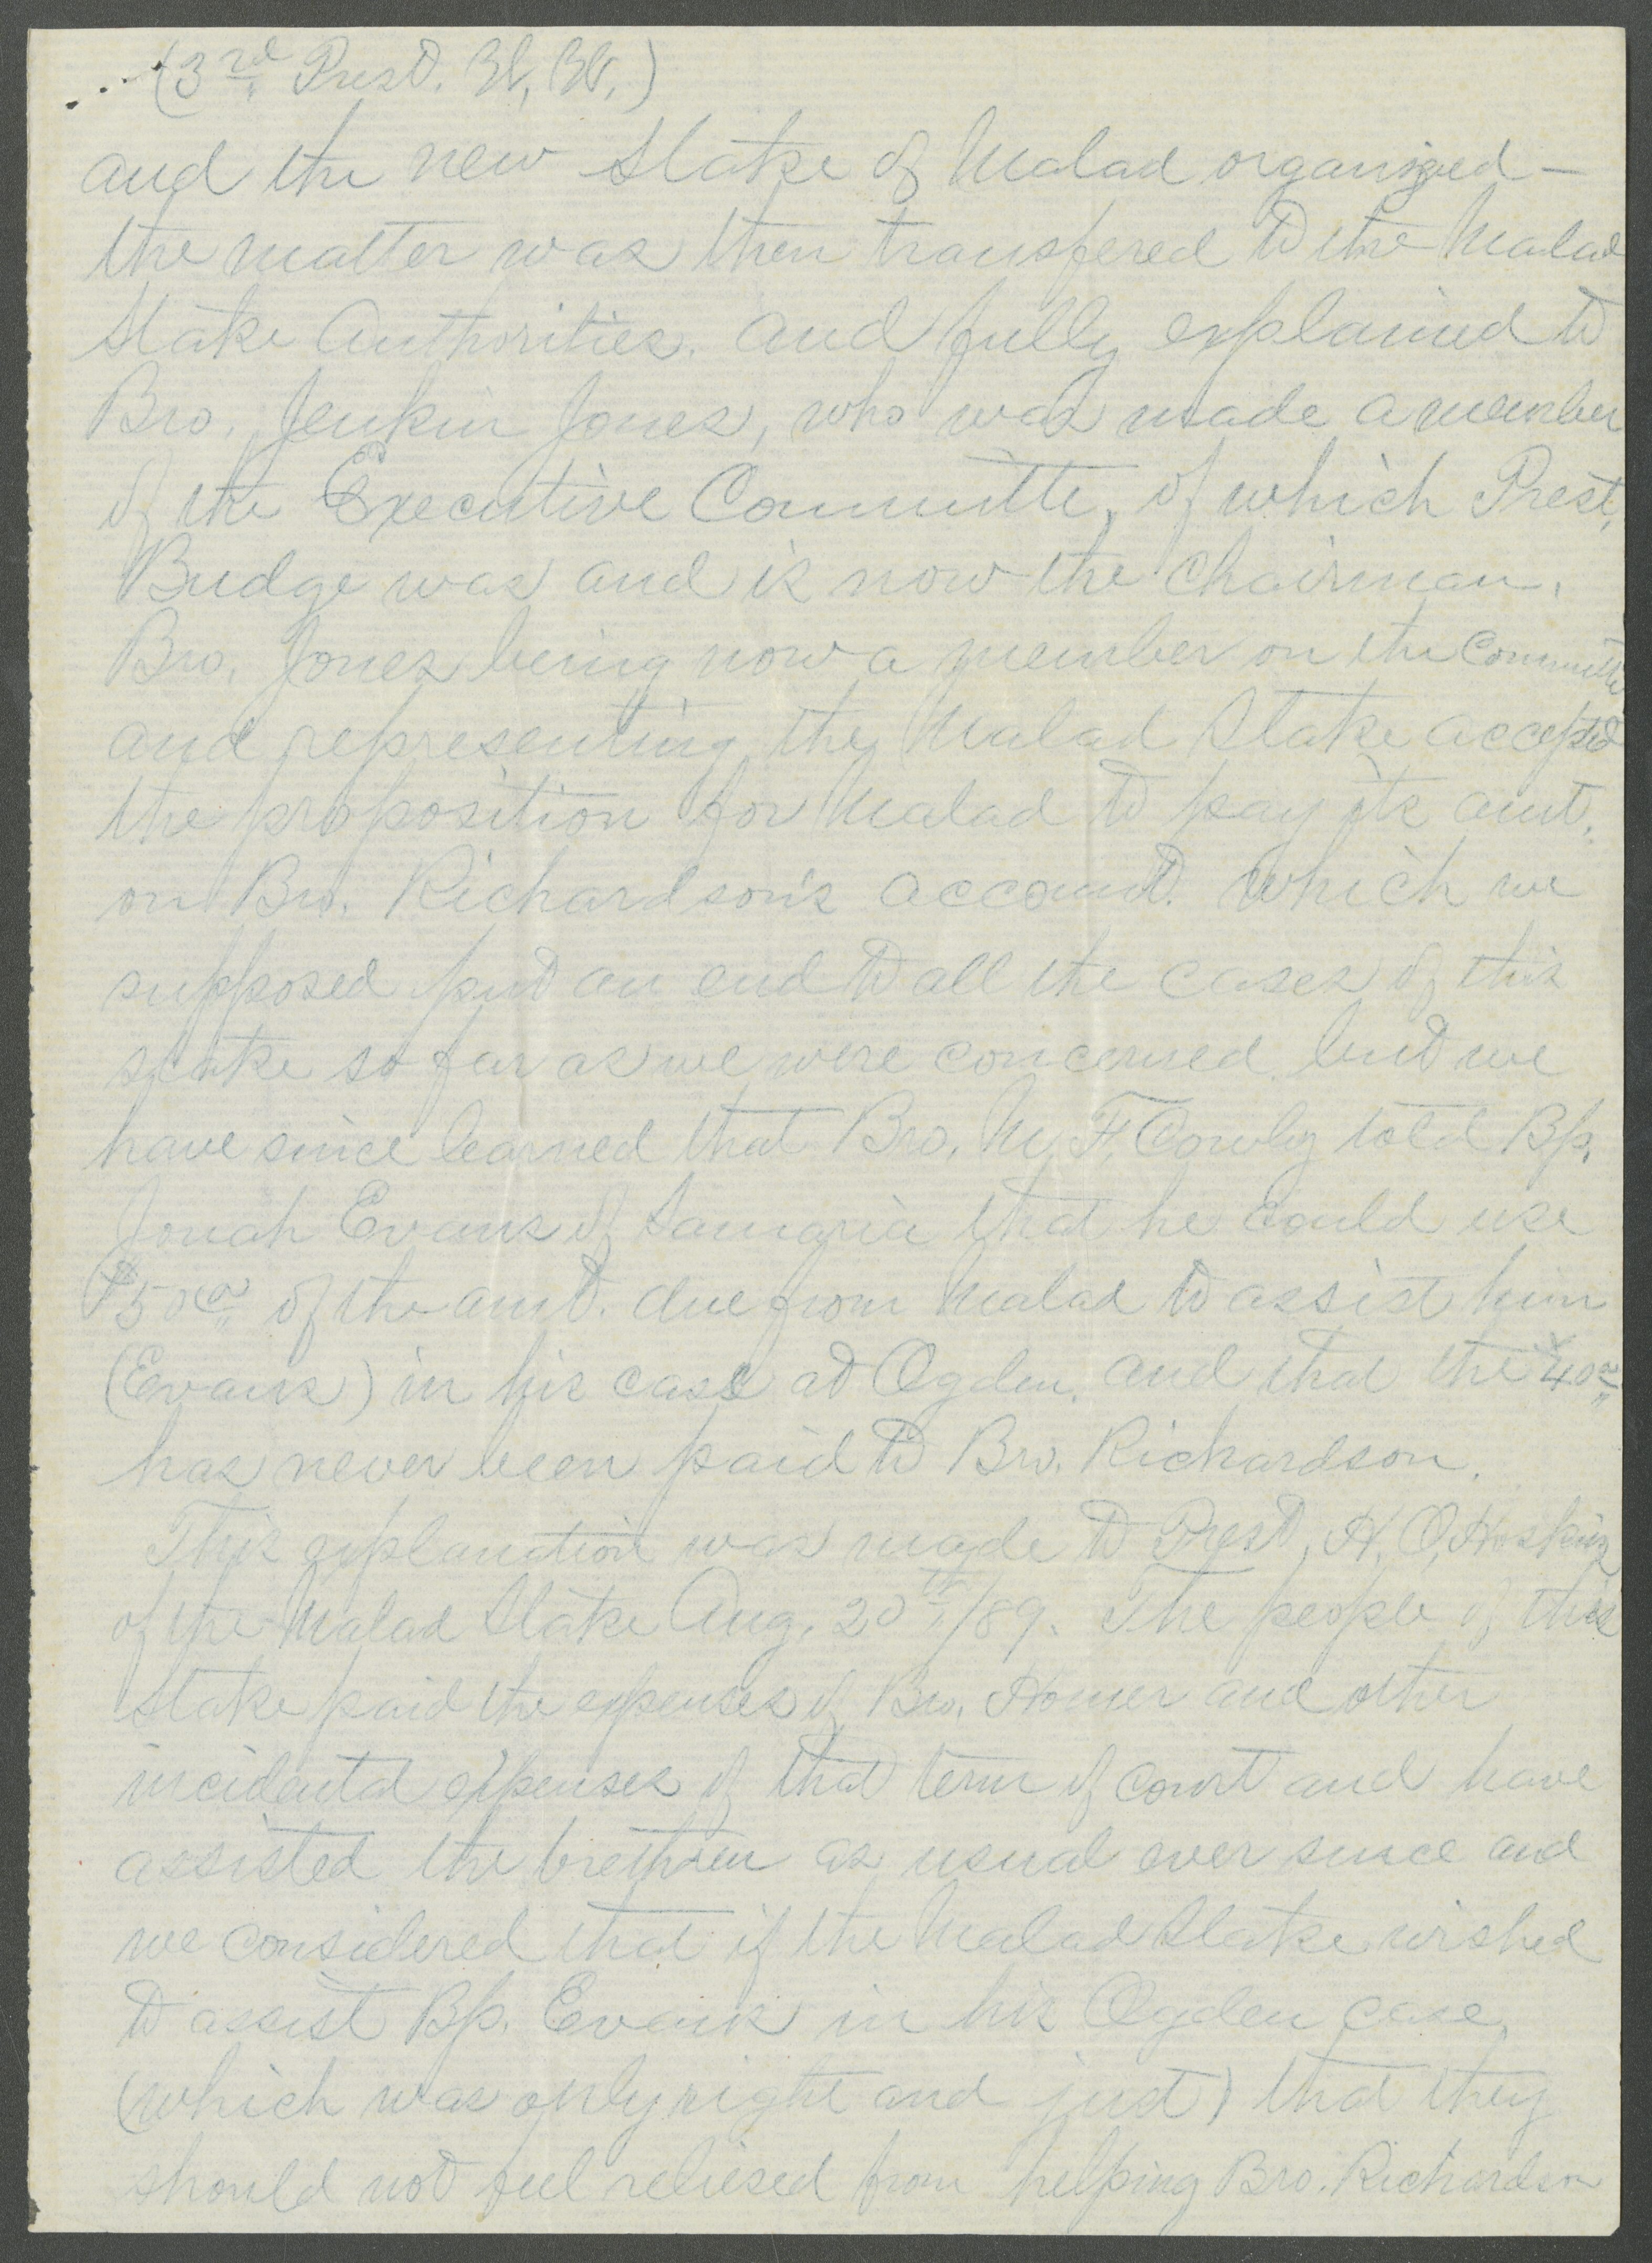 (3rd Prest. W, W,)
and the new Stake of Malad organized —
the matter was then transfered to the Malad
Stake Authorities. and fully explained to
Bro. Jenkin Jones, who was made a member
of the Executive Committe, of which Prest.
Budge was and is now the chairman.
Bro. Jones being now a member on the Committe
and representing the Malad Stake accepted
the proposition for Malad to pay its amt.
on Bro. Richardson's account. which we
supposed put an end to all the cases of this
stake so far as we were concerned but we
have since learned that Bro. M. F. Cowly told Bp.
Jonah Evans of Samaria that he could use
$50.00 of the amt. due from Malad to assist him
(Evans) in his case at Ogden. and that the $40.00
has never been paid to Bro. Richardson.
This explanation was made to Prest. H. O. Hoskins
of the Malad Stake Aug. 20th/89. The people of this
Stake paid the expenses of Bro. Homer and other
incidental expenses of that term of court and have
assisted the brethren as usual ever since and
we considered that if the Malad Stake wished
to assist Bp. Evans in his Ogden case,
(which was only right and just) that they
should not feel reliesed from helping Bro. Richardson